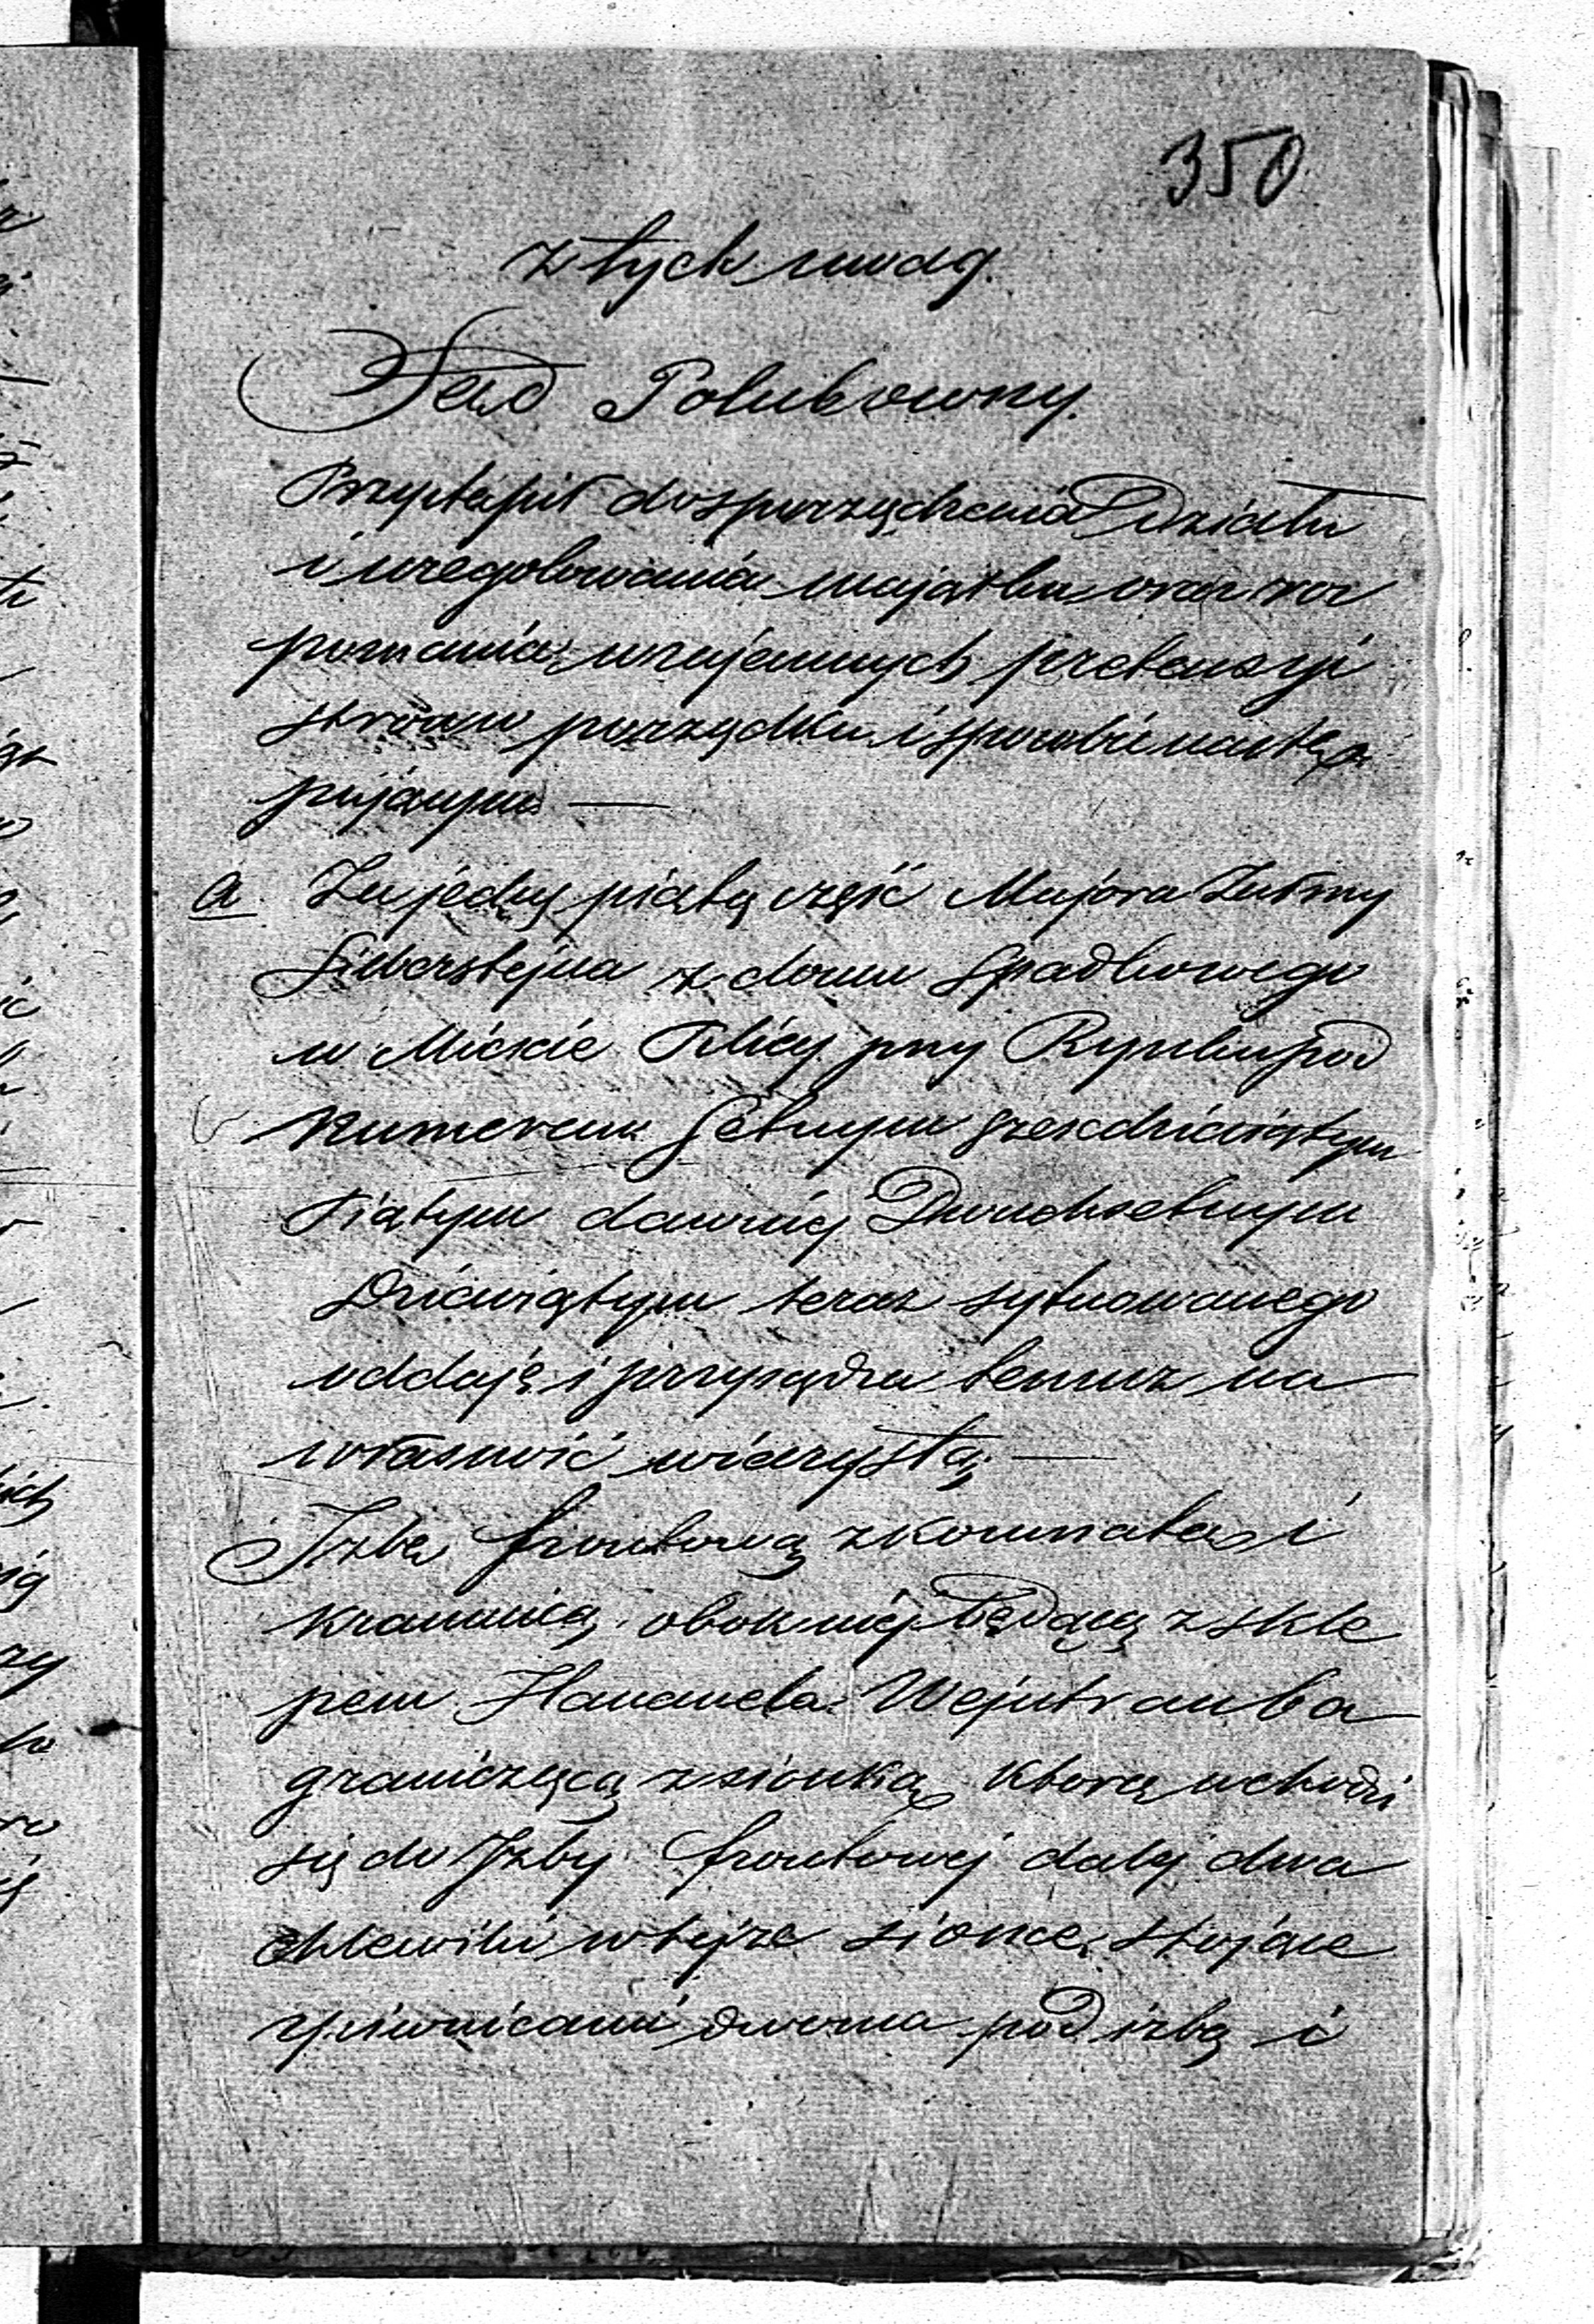 350
z tych uwag.
Sąd Polubowny.
Przystąpił do sporządzenia Działu
i uregolowania majątku oraz roz
poznania wzajemnych pretensyi
stron w porządku i sposobie nastę
pującym —
a Za jedną piątą część Majora Zulmy
Silberstejna z domu spadkowego
w Mieście Pilicy przy Rynku pod
Numerem Setnym sześćdziesiątym
Piątym dawniej Dwuchsetnym
Dziewiątym teraz sytuowanego
oddaję i przysądza temuż na
własność wieczystą —
Izbę frontową z komnatą i
kramnicą obok niej będącą z skle
pem Hanamela Wejntrauba
graniczącą z sionką którą wchodzi
się do Izby frontowej dalej dwa
chlewiki w tejże sionce stojące
z piwnicami dwoma pod izbą i